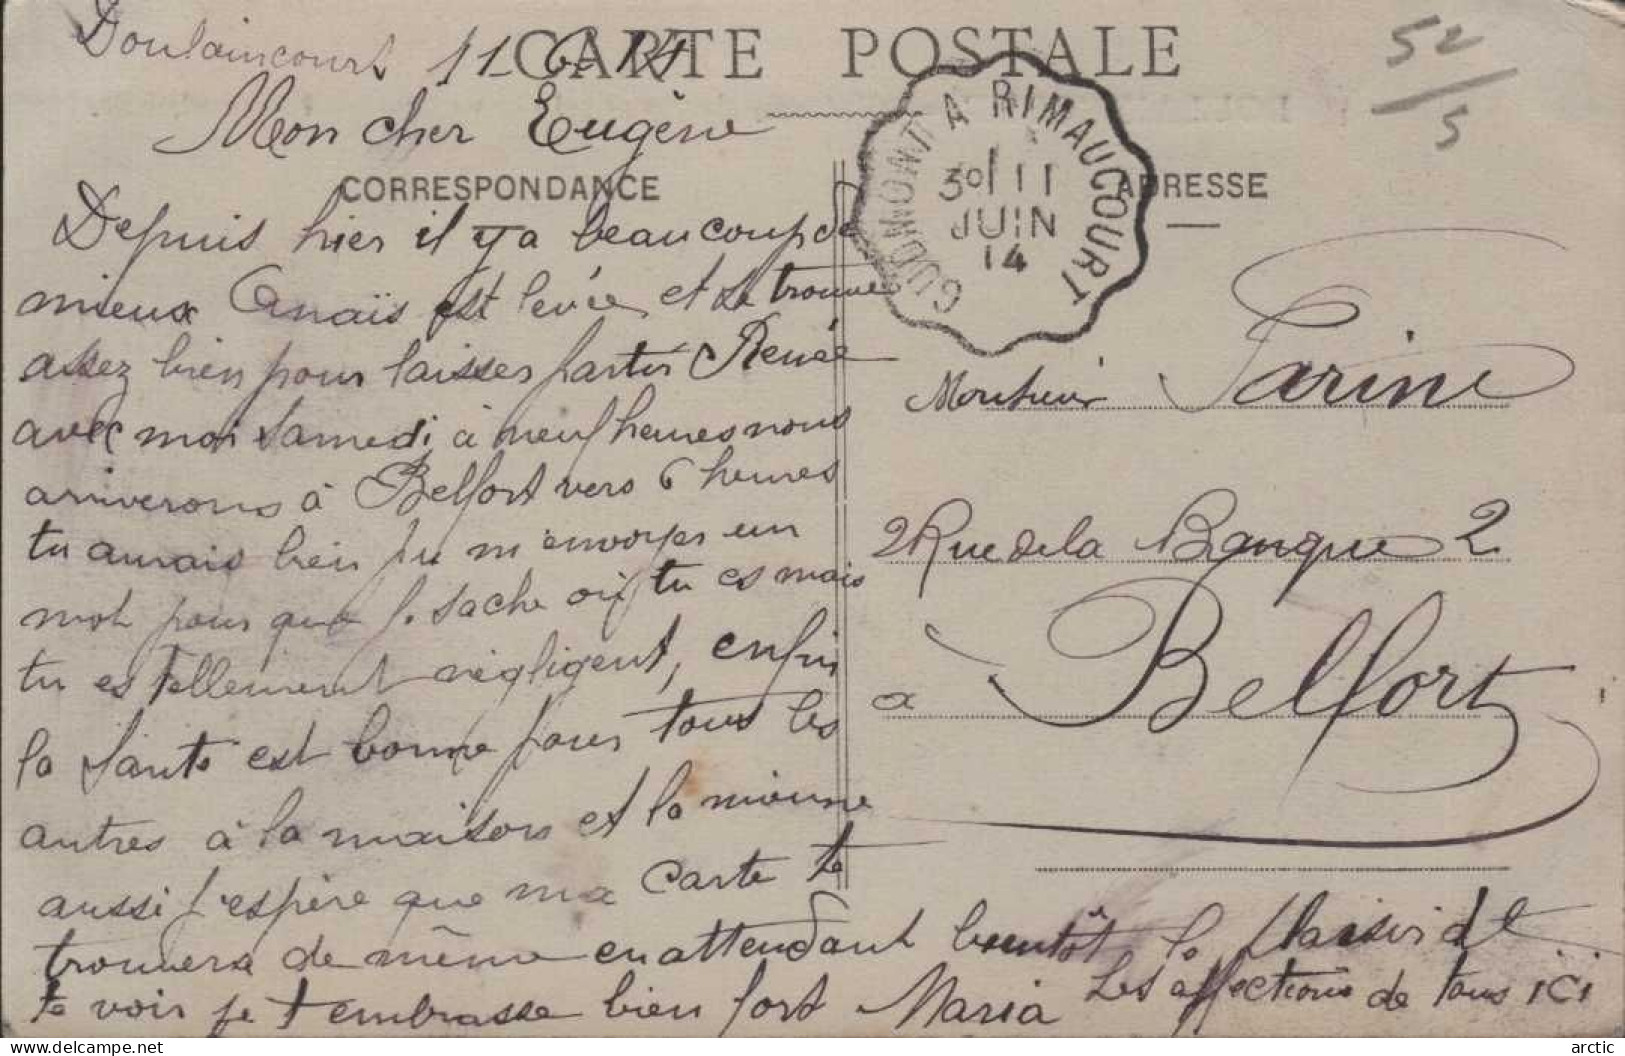 Doulaincourt 11-6-14
CARTE POSTALE
52/5
Mon cher Eugène
CORRESPONDANCE
ADRESSE
GUDMONT A RIMAUCOURT
30/ 11
JUIN
14
Depuis hier il y a beaucoup de
mieux Anaïs est levée et se trouve
assez bien pour laisser partir Renée
avec moi Samedi à neuf heures nous
arriverons à Belfort vers 6 heures
tu aurais bien pu m'envoyer un
mot pour que je sache où tu es mais
tu es tellement négligent, enfin
la Santé est bonne pour tous les
autres à la maison et la mienne
aussi j'espère que ma carte te
trouvera de même en attendant bientôt le plaisir de
te voir je t'embrasse bien fort Maria
Les affections de tous ici
Monsieur Farine
2 Rue de la Banque 2
a Belfort
arctic
delcampe.net